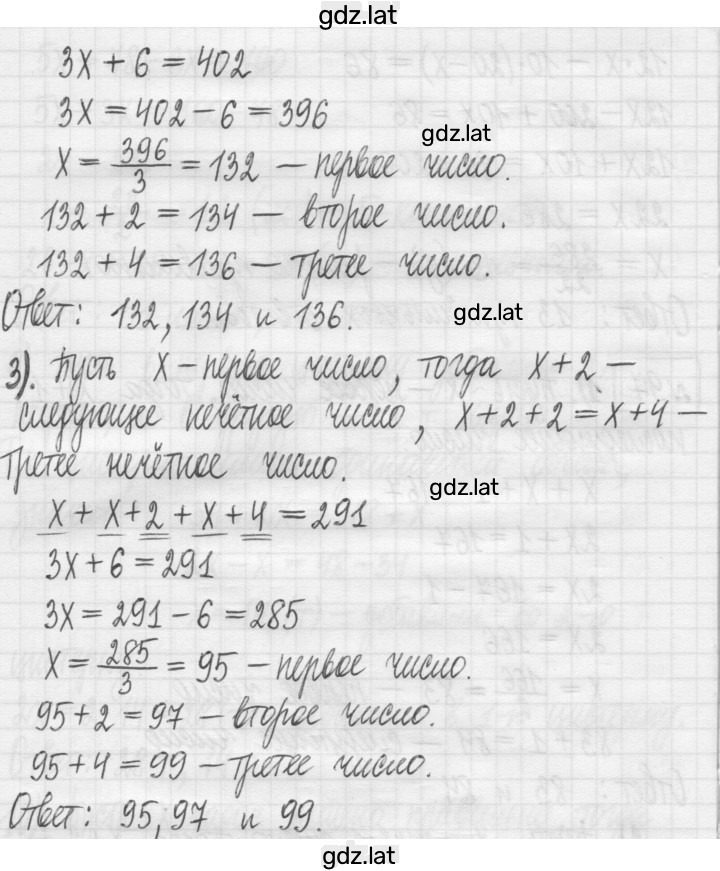 gdz.lat
3x + 6 = 402
3x = 402 - 6 = 396
gdz.lat
x = 396/3 = 132 — первое число.
132 + 2 = 134 — второе число.
132 + 4 = 136 — третее число.
Ответ: 132, 134 и 136.
gdz.lat
3). Пусть x – первое число, тогда x + 2 —
следующее нечётное число, x + 2 + 2 = x + 4 —
третее нечётное число.
gdz.lat
x + x + 2 + x + 4 = 291
3x + 6 = 291
3x = 291 - 6 = 285
x = 285/3 = 95 — первое число.
95 + 2 = 97 — второе число.
95 + 4 = 99 — третее число.
Ответ: 95, 97 и 99.
gdz.lat